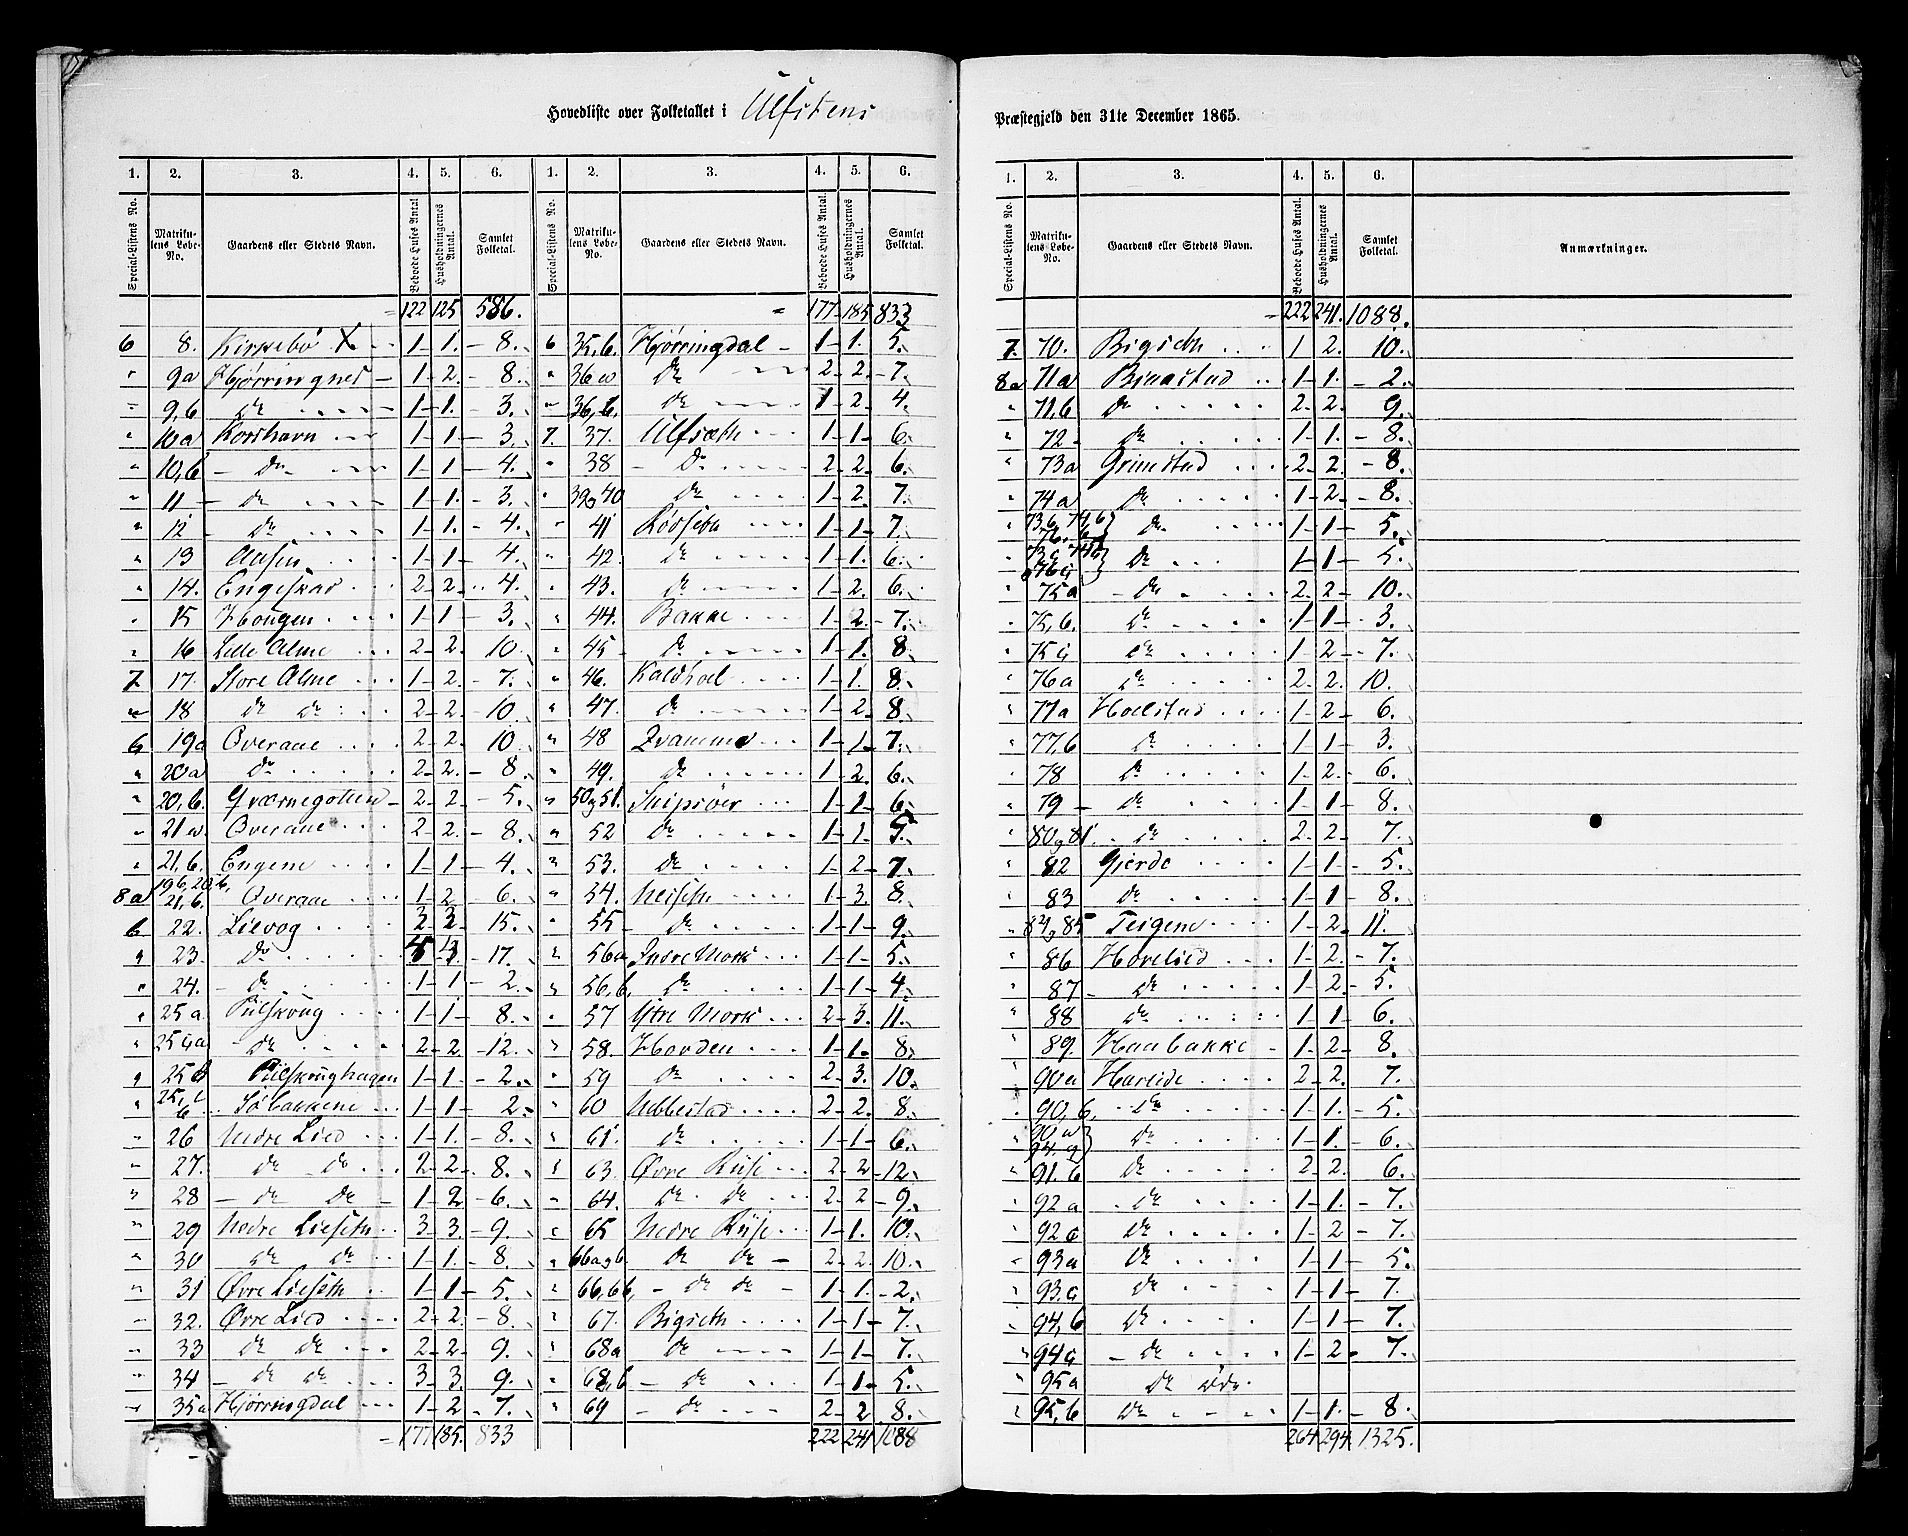 Hovedliste over Folketallet i Ulfstens
Præstegjeld den 31te December 1865.
1. 2. 3. 4. 5. 6. 1. 2. 3. 4. 5. 6.
Special-Listens No. Matrikulens Løbe-No. Gaardens eller Stedets Navn. Beboede Huses Antal Husholdningernes Antal. Samlet Folketal. Special-Listens No. Matrikulens Løbe-No. Gaardens eller Stedets Navn. Beboede Huses Antal. Husholdningernes Antal. Samlet Folketal.
= 122 125 586.
6 8. Kirkebø X 1 1. 8.
" 9a Hjørringnes 1 2. 8.
" 9,b do 1 1. 3.
" 10a Korshavn 1 1 3.
" 10,b do 1 1 4.
" 11 do 1 1. 3.
" 12 do 1 1. 4.
" 13 Aasen 1 1 4.
" 14. Engeskar 2 2. 4.
" 15 Hougen 1 1 3.
" 16 Lille Alme 2 2. 10.
7 17. Store Alme 1 2. 7.
" 18 do do 2 2. 10
6 19a Overaae 2 2. 10.
" 20a do 2 2. 8.
" 20,b. Qværnegotten 2 2. 5.
" 21a Overaae 2 2. 8.
" 21,b. Engene 1 1 4.
8a 19b, 20,b, 21,b. Overaae 1 2 6.
6 22. Lievog 3 3 15.
" 23. do 17.
" 24. do 1 1 2.
" 25a. Pilskoug 1 1 8.
" do 2 2. 12.
" Pilskoughagen 1 1 2.
" Söbakkene 1 1 2.
" 26 Nedre Lied 1 1. 8.
" 27. do do 2 2. 8.
" 28 do do 1 2 6.
" 29 Nedre Lieseth 3 3. 9.
" 30 do do 1 1. 8.
" 31 Øvre Lieseth 1 1 5.
" 32. Øvre Lied 2 2. 8.
" 33 do do 2 2. 9.
" 34 do do 3 3. 9.
" 35a Hjørringdal 1 2 7.
= 177 185. 833
" 177 185 833
6 35,b. Hjørringdal 1 1. 5.
" 36a do 2 2. 7.
" 36,b. do 1 2. 4.
7. 37. Ulfsæth 1 1 6.
" 38 do 2 2. 6.
" 39og40 do 1 2. 7.
" 41 Rødseth 1 1 7.
" 42. do 1 1. 6.
" 43. do 1 2. 6.
" 44. Bakke 1 2. 7.
" 45 do 1 1. 8
" 46. Kaldhol 1 1. 8.
" 47. do 1 2. 8.
" 48 1 1. 7.
" 49. do 1 2. 6.
" 50og51. Skipsöer 1 1 6.
" 52 do 1 1. 5.
" 53. do 1 2 7.
" 54. Neiseth 1 3. 8.
" 55 do 1 1 9.
" 56a Indre Mork 1 1 5.
" 56,b, do 1 1 4.
" 57 Ytre Mork 2 3. 11.
" 58. Hovden 1 1. 8.
" 59 do 2 3. 10.
" 60 Ubbestad 2 2. 8.
" 61. do 1 1 6.
" 63. Øvre Riise 2 2 12.
" 64. do do 2 2 9.
" 65 Nedre Riise 1 1. 10.
" 66aogb. do do 2 2. 10.
" 66,bb, do do 1 1. 2.
" 67. Bigseth 1 1 7.
" 68a do 1 1 7.
" 68,b do 1 1. 5.
" 69 do 2 2 8.
222 241 1088
1. 2. 3. 4. 5. 6.
Special-Listens No. Matrikulens Løbe-No. Gaardens eller Stedets Navn. Beboede Huses Antal. Husholdningernes Antal. Samlet Folketal. Anmærkninger.
= 222 241. 1088.
7. 70. Bigseth 1 2. 10.
8a 71a Bjaastad 1 1. 2.
" 71,b do 2 2. 9.
" 72 do 1 1. 8.
" 73a Grimstad 2 2. 8.
" 74a do 1 2 8.
" 73b, 74,b, 76,b } do 1 1 5.
" 73c, 74c, 76c } do 1 1 5.
" 75a do 2 2 10.
" 75,b. do 1 1 3.
" 75c do 1 2 7.
" 76a do 2 2. 10.
" 77a Holstad 1 2 6.
" 77,b do 1 1 3.
" 78 do 1 2 6.
" 79 do 1 1 8.
" 80og81. do 2 2 7.
" 82 Gjerde 1 1 5.
" 83 do 1 1 8.
" 84og85 Teigene 1 2. 11.
" 86 Hovelied 1 2. 7.
" 87 do 1 2. 5.
" 88 do 1 1 6.
" 89. Haabakke 1 2 8.
" 90a Hareide 2 2. 7.
" 90,b, do 1 1. 5.
" do 1 1. 6.
" 91.b do 2 2. 6.
" 92a do 1 1. 7.
" 92c do 1 2 7.
" 93a do 1 1 5.
" 93.c do 1 1 7.
" 94,b do 1 1 7.
" 94c do 1 2. 7.
" 95a do øde.
" 95,b do 1 1. 8.
264 294. 1325.